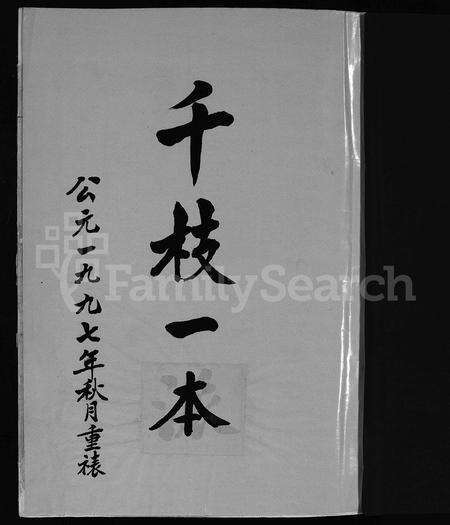 千枝一本
公元一九九七年秋月重裱
FamilySearch